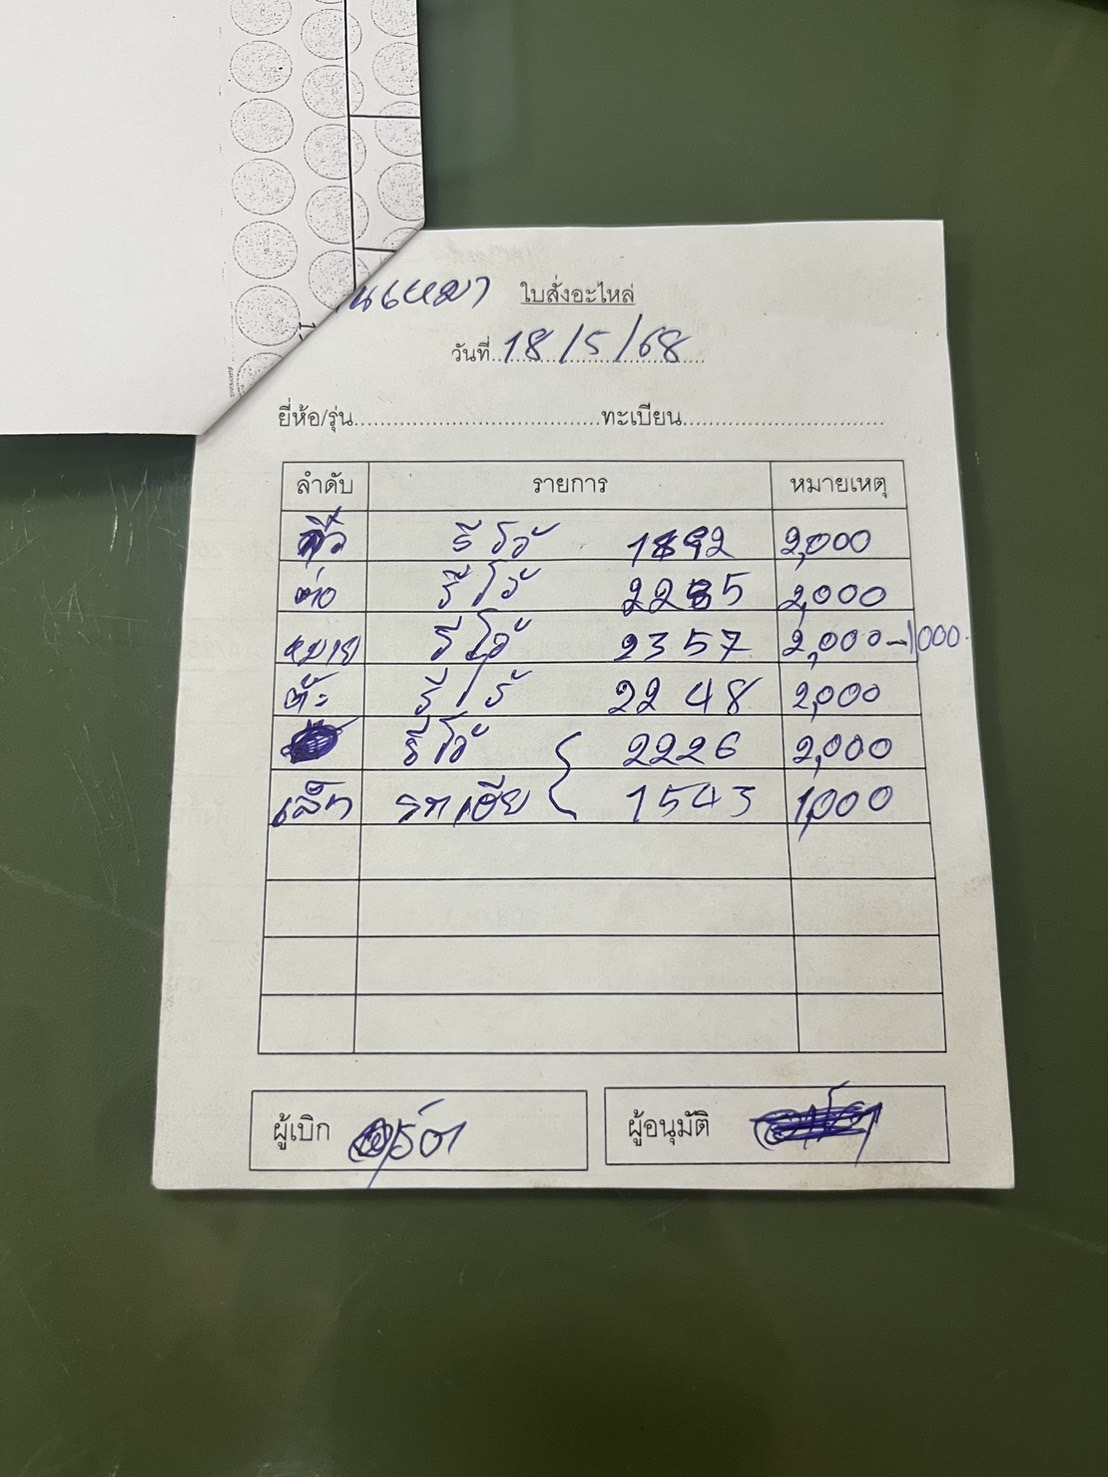 ใบสั่งอะไหล่
วันที่ 18/5/68
ยี่ห้อ/รุ่น ทะเบียน
ลำดับ รายการ หมายเหตุ
รีโว้ 1892 2,000
ต่อ รีโว้ 2285 2,000
หมาย รีโว้ 2357 2,000-1,000
ต๊ะ รีโว้ 2248 2,000
รีโว้ 2226 2,000
เล็ก รถเฮีย 1543 1,000
ผู้เบิก ผู้อนุมัติ